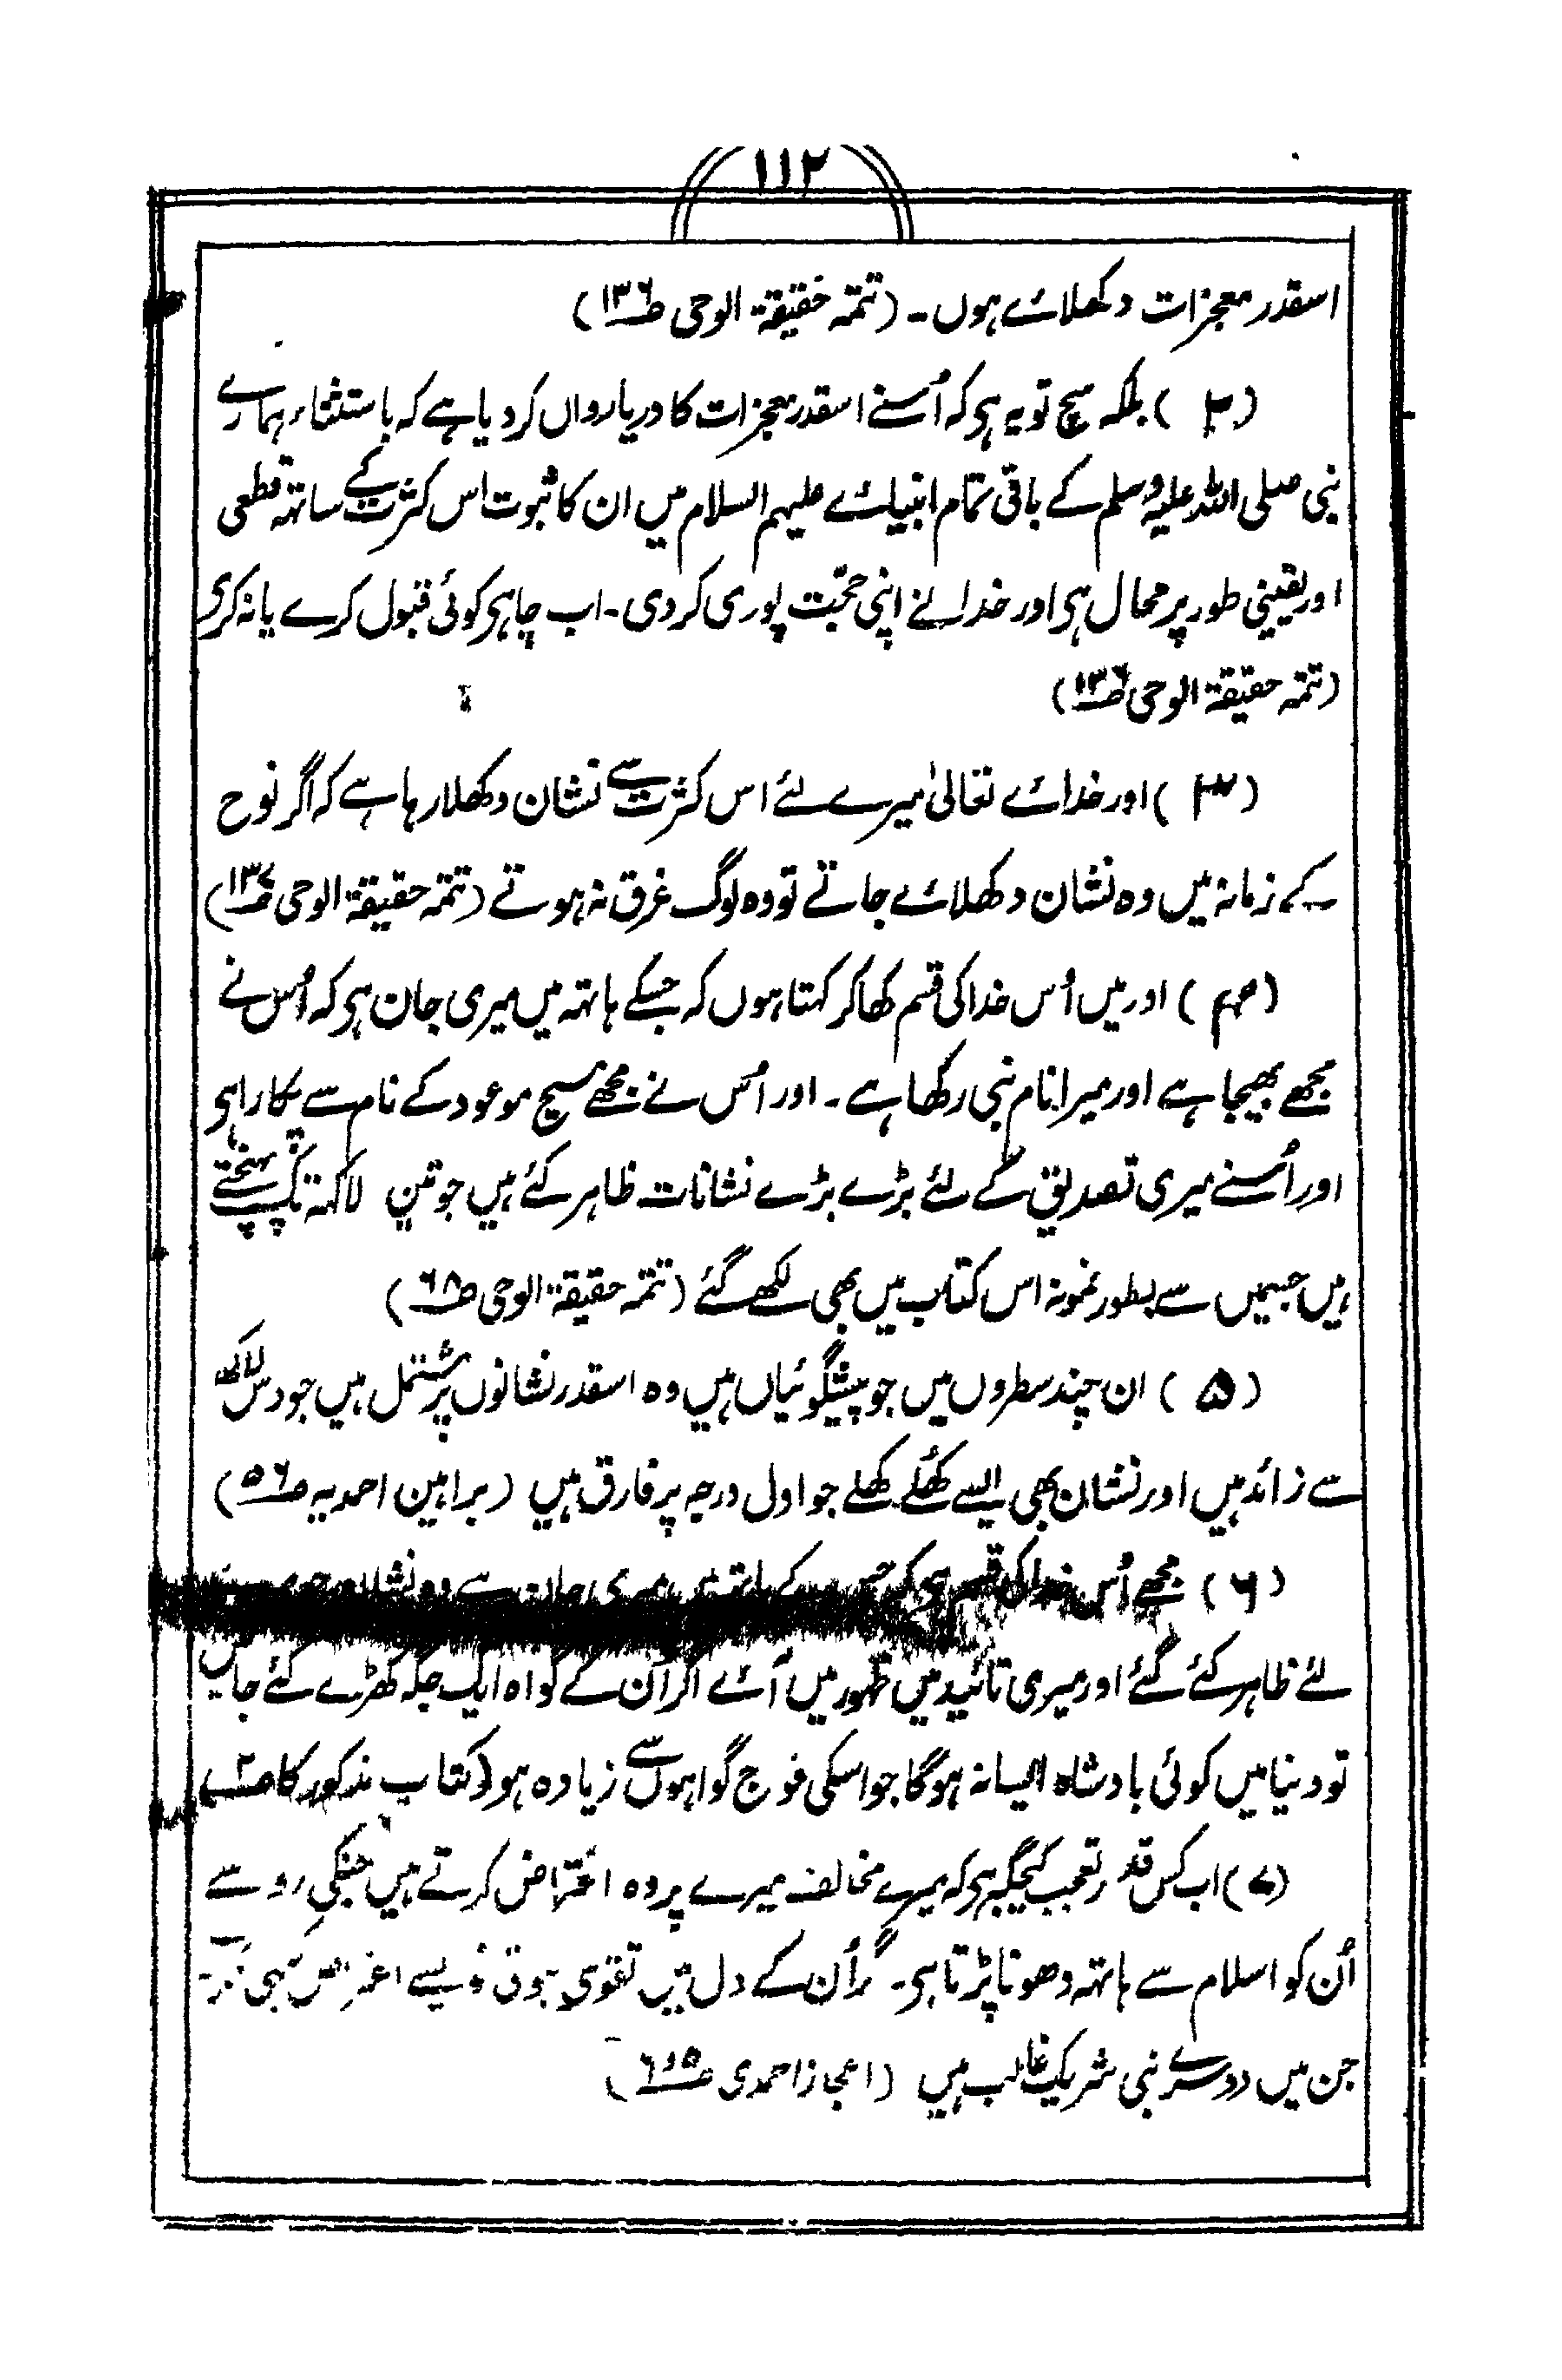 ۱۱۲
اسقدر معجزات دکھلائے ہوں۔ (تتمہ حقیقۃ الوحی ص۱۳۶)
(۲) بلکہ سچ تو یہ ہی کہ اُسنے اسقدر معجزات کا دریا رواں کر دیا ہے کہ باستثناء ہمارے
نبی صلی اللہ علیہ وسلم کے باقی تمام انبیائے علیہم السلام میں ان کا ثبوت اس کثرت کے ساتھ قطعی
اور یقینی طور پر محال ہی اور خدا نے اپنی حجّت پوری کر دی۔ اب چاہی کوئی قبول کرے یا نہ کری
(تتمہ حقیقۃ الوحی ص۱۳۶)
(۳) اور خدائے تعالیٰ میرے لئے اس کثرت سے نشان دکھلا رہا ہے کہ اگر نوح
کے زمانہ میں وہ نشان دکھلائے جاتے تو وہ لوگ غرق نہ ہوتے (تتمہ حقیقۃ الوحی ص۱۳۷)
(۴) اور میں اُس خدا کی قسم کھا کر کہتا ہوں کہ جسکے ہاتھ میں میری جان ہی کہ اُس نے
مجھے بھیجا ہے اور میرا نام نبی رکھا ہے۔ اور اُس نے مجھے مسیح موعود کے نام سے پکارا ہی
اور اُسنے میری تصدیق کے لئے بڑے بڑے نشانات ظاہر کئے ہیں جو تین لاکھ تک پہنچتے
ہیں جسمیں سے بطور نمونہ اس کتاب میں بھی لکھے گئے (تتمہ حقیقۃ الوحی ص۶۸)
(۵) ان چند سطروں میں جو پیشگوئیاں ہیں وہ اسقدر نشانوں پر مشتمل ہیں جو دس لاکھ
سے زائد ہیں اور نشان بھی ایسے کھُلے کھلے جو اول درجہ پر فارق ہیں (براہین احمدیہ ص۵۶)
(۶) مجھے اُس خدا کی قسم ہی کہ جس کے ہاتھ میں میری جان ہے وہ نشان جو
لئے ظاہر کئے گئے اور میری تائید میں ظہور میں آئے اگر اُن کے گواہ ایک جگہ کھڑے کئے جائیں
تو دنیا میں کوئی بادشاہ ایسا نہ ہوگا جو اسکی فوج گواہوں سے زیادہ ہو (کتاب مذکور کا ص۲)
(۷) اب کس قدر تعجب کیجگہ ہی کہ میرے مخالف میرے پر وہ اعتراض کرتے ہیں جنکی رو سے
اُن کو اسلام سے ہاتھ دھونا پڑتا ہی۔ گر اُن کے دل میں تقوی ہوتی
جن میں دوسرے نبی شریک غالب ہیں (اعجاز احمدی ص۵و۶)